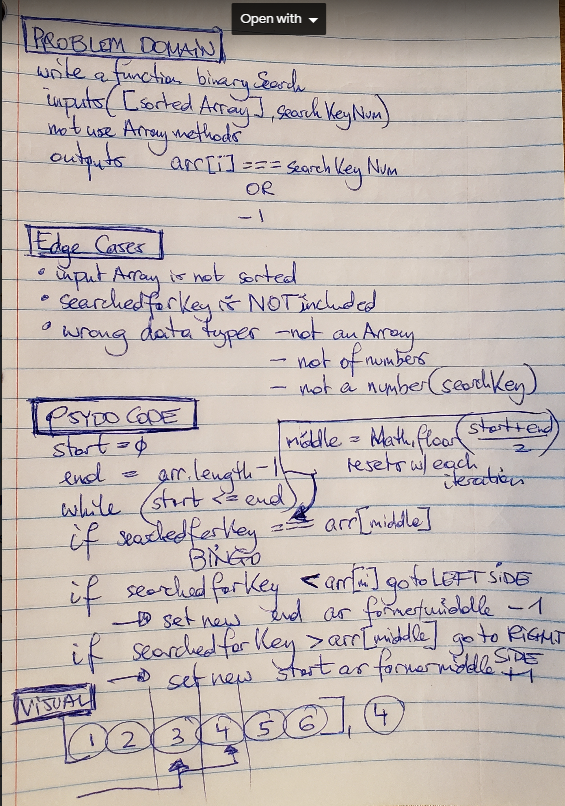 Open with
PROBLEM DOMAIN
write a function binary Search
inputs([sorted Array], searchKeyNum)
not use Array methods
outputs arr[i] === searchKeyNum
OR
-1
Edge Cases
• input Array is not sorted
• searchedforKey is NOT included
• wrong data types - not an Array
- not of numbers
- not a number (searchKey)
PSYDO CODE
start = 0
middle = Math.floor(start+end / 2)
resets w/ each
iteration
end = arr.length - 1
while (start <= end)
if searchedforKey === arr[middle]
BINGO
if searchedforKey < arr[m] go to LEFT SIDE
→ set new end as former middle - 1
if searchedforKey > arr[middle] go to RIGHT
SIDE
→ set new start as former middle +1
VISUAL
[1 2 3 4 5 6], 4